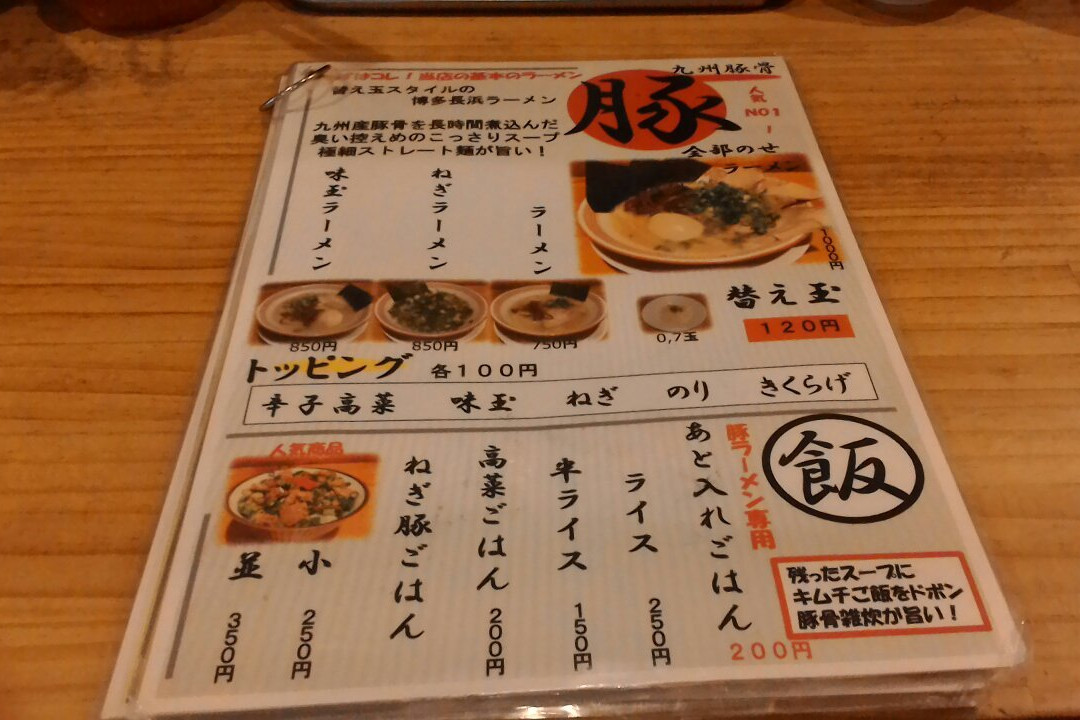 コレ！当店の基本のラーメン
替え玉スタイルの
博多長浜ラーメン
九州産豚骨を長時間煮込んだ
臭い控えめのこっさりスープ
極細ストレート麺が旨い！
九州豚骨
豚
人気
NO1
！
全部のせ
ラーメン
1000円
ラーメン
750円
ねぎラーメン
850円
味玉ラーメン
850円
替え玉
120円
0,7玉
トッピング 各100円
辛子高菜 味玉 ねぎ のり きくらげ
飯
豚ラーメン専用
あと入れごはん
200円
残ったスープに
キムチご飯をドボン
豚骨雑炊が旨い！
ライス
250円
半ライス
150円
高菜ごはん
200円
ねぎ豚ごはん
人気商品
小
250円
並
350円